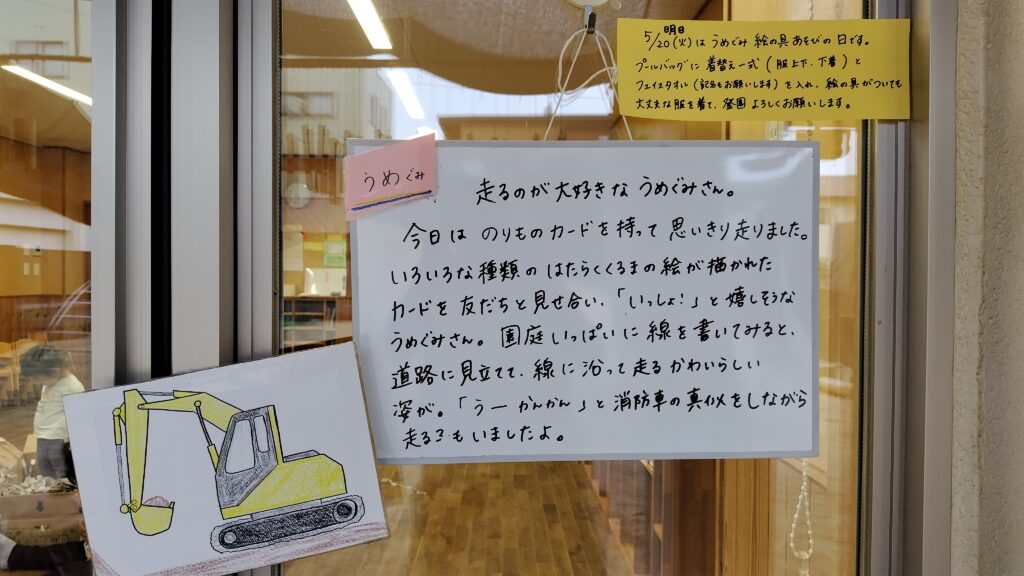 明日
5/20(火)は うめぐみ 絵の具あそびの日です。
プールバッグに 着替え一式(服上下、下着)と
フェイスタオル(記名もお願いします)を入れ、絵の具がついても
大丈夫な服を着て、登園 よろしくお願いします。
うめぐみ
走るのが大好きな うめぐみさん。
今日は のりものカードを持って 思いきり走りました。
いろいろな種類の はたらくくるまの絵が描かれた
カードを 友だちと見せ合い、「いっしょ!」と嬉しそうな
うめぐみさん。園庭いっぱいに 線を書いてみると、
道路に見立てて、線に沿って走る かわいらしい
姿が。「うーかんかん」と消防車の真似をしながら
走る子もいましたよ。